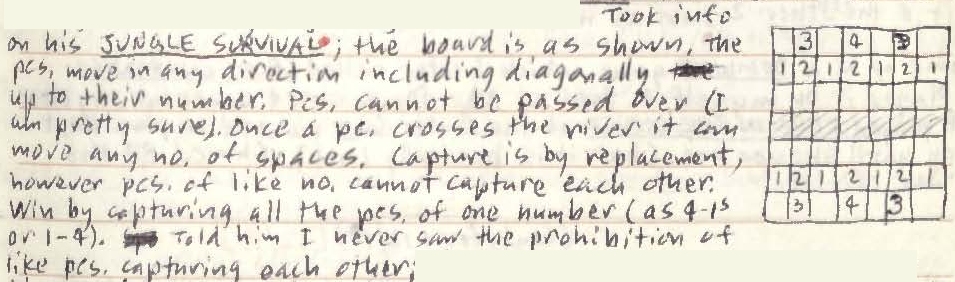 Took info
on his JUNGLE SURVIVAL; the board is as shown, the
pcs, move in any direction including diagonally
up to their number. Pcs, cannot be passed over (I
am pretty sure). Once a pc. crosses the river it can
move any no. of spaces. Capture is by replacement,
however pcs. of like no. cannot capture each other.
Win by capturing all the pcs. of one number (as 4-1s
or 1-4). Told him I never saw the prohibition of
like pcs. capturing each other;
3 4 3
1 2 1 2 1 2 1
1 2 1 2 1 2 1
3 4 3